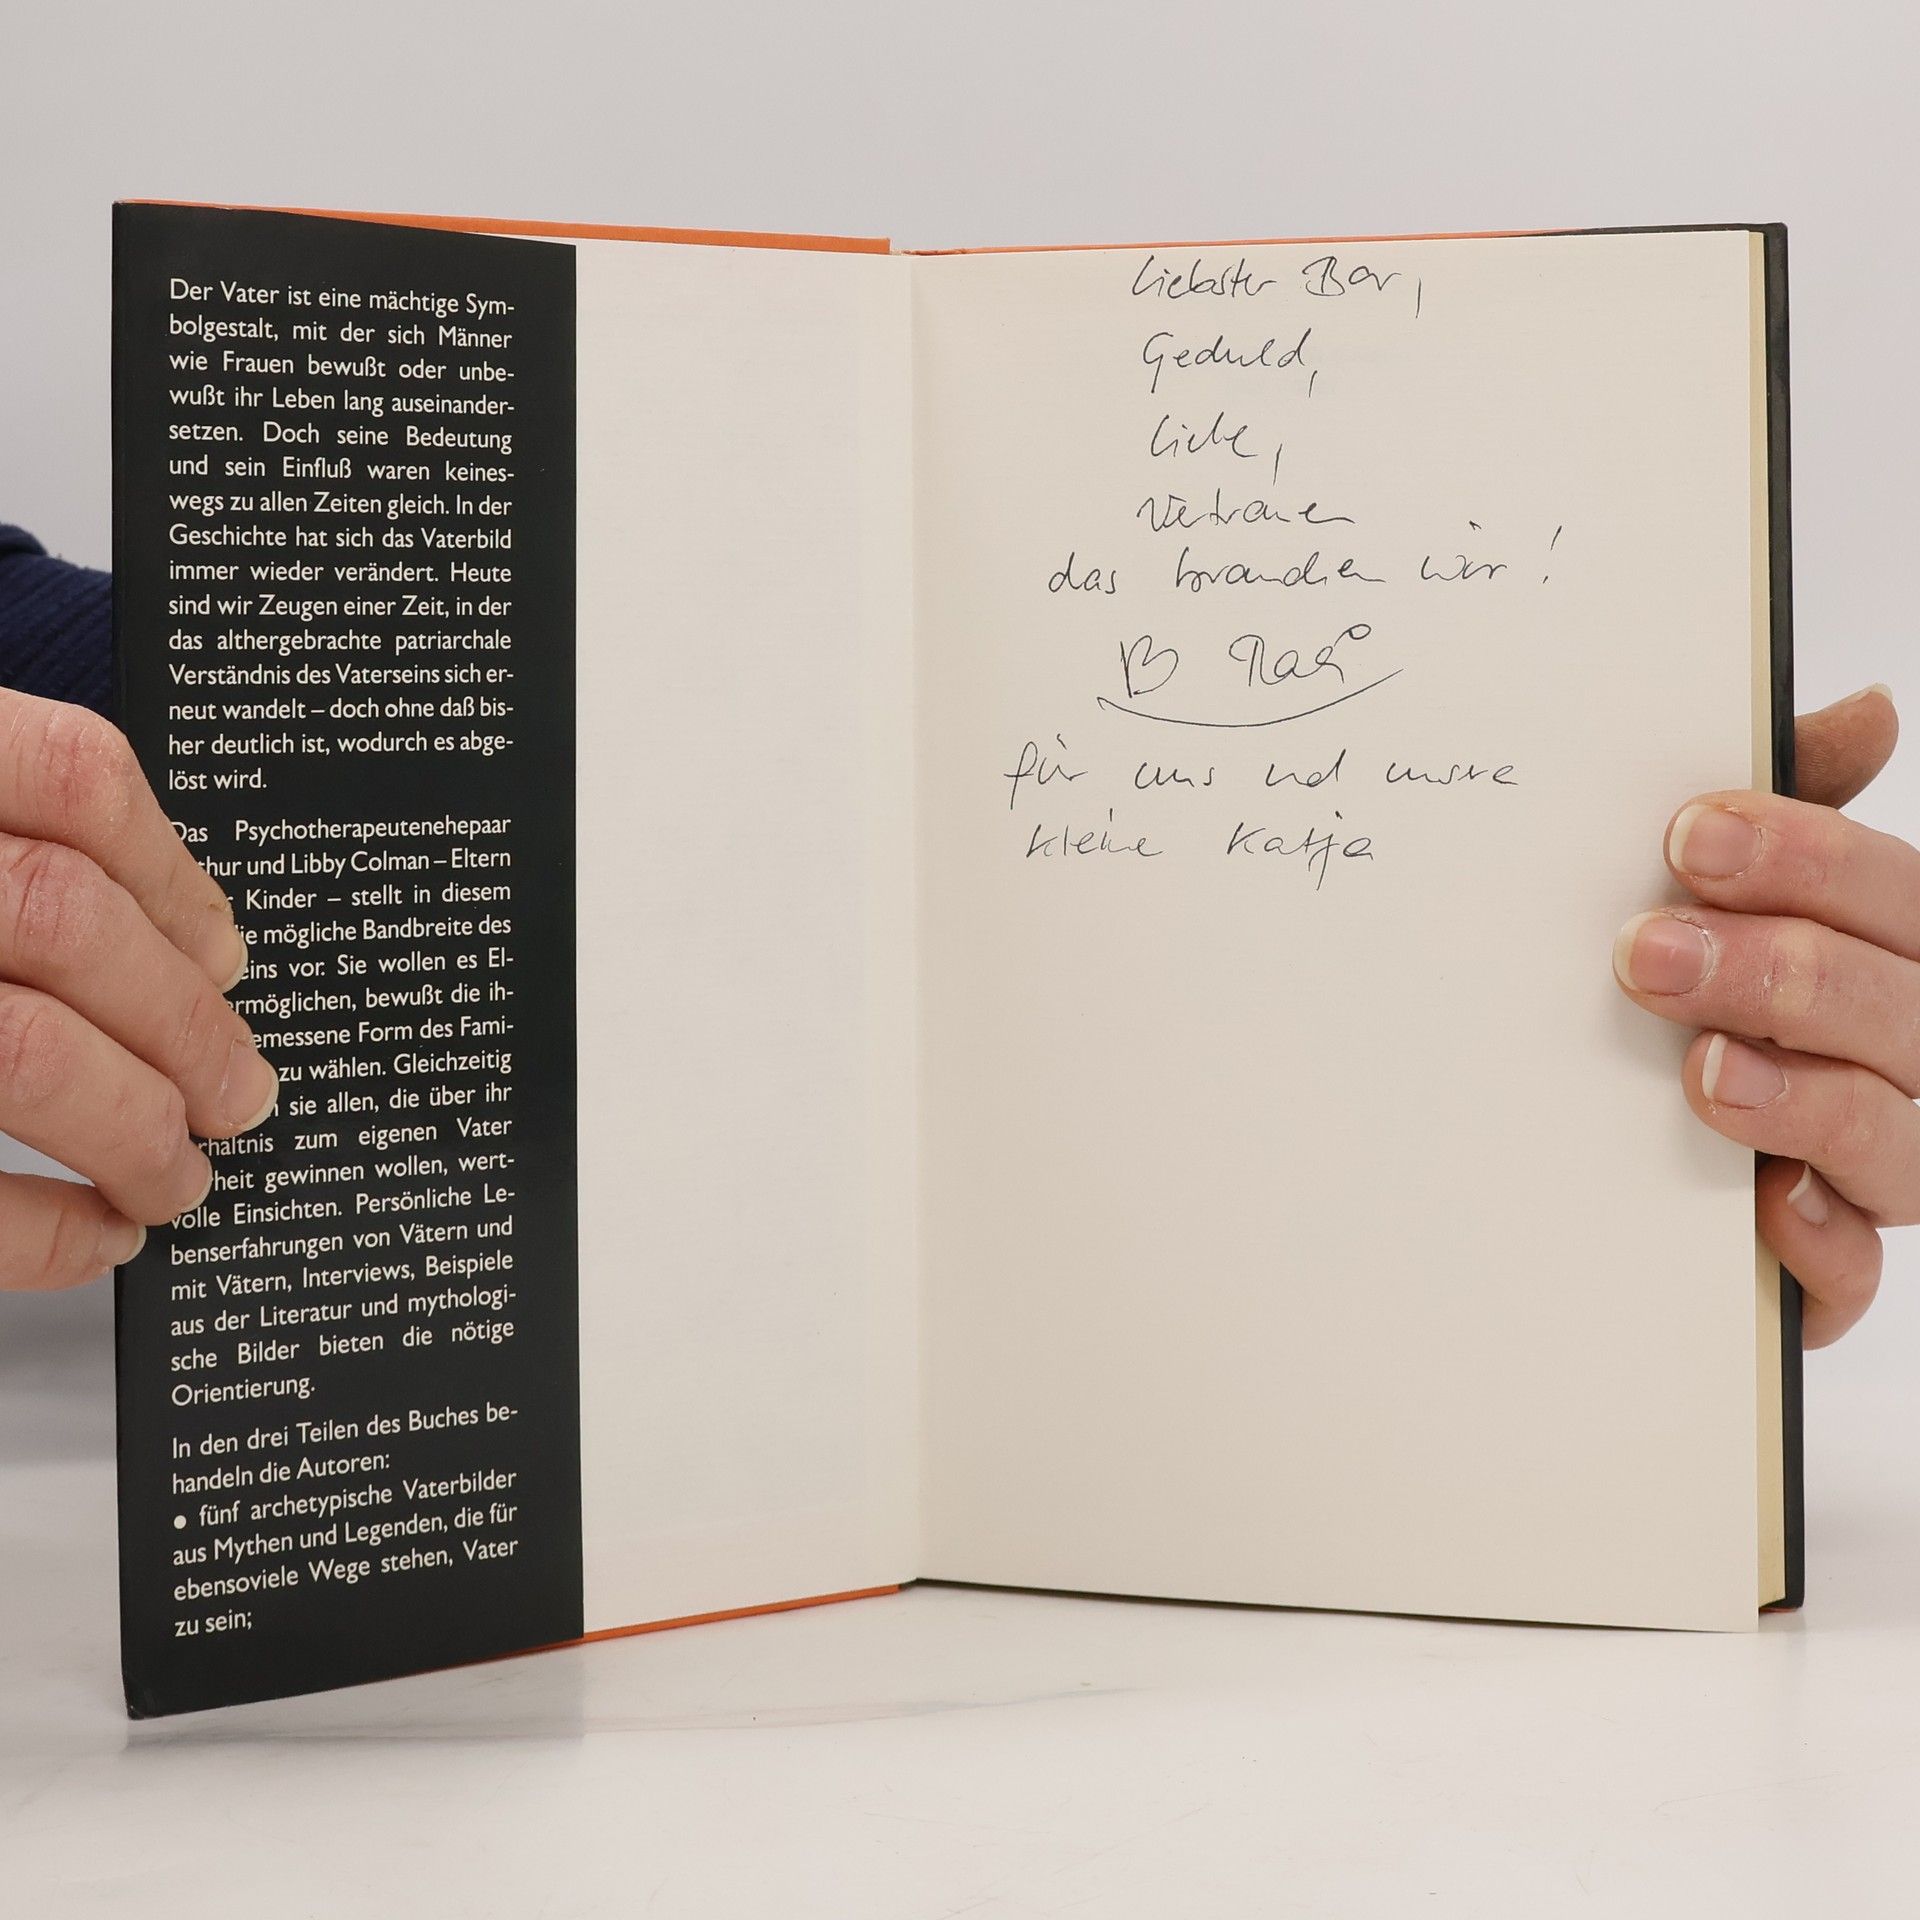 Der Vater ist eine mächtige Sym-
bolgestalt, mit der sich Männer
wie Frauen bewußt oder unbe-
wußt ihr Leben lang auseinander-
setzen. Doch seine Bedeutung
und sein Einfluß waren keines-
wegs zu allen Zeiten gleich. In der
Geschichte hat sich das Vaterbild
immer wieder verändert. Heute
sind wir Zeugen einer Zeit, in der
das althergebrachte patriarchale
Verständnis des Vaterseins sich er-
neut wandelt – doch ohne daß bis-
her deutlich ist, wodurch es abge-
löst wird.
Das Psychotherapeutenehepaar
thur und Libby Colman – Eltern
r Kinder – stellt in diesem
ie mögliche Bandbreite des
eins vor. Sie wollen es El-
rmöglichen, bewußt die ih-
emessene Form des Fami-
zu wählen. Gleichzeitig
n sie allen, die über ihr
rhältnis zum eigenen Vater
heit gewinnen wollen, wert-
volle Einsichten. Persönliche Le-
benserfahrungen von Vätern und
mit Vätern, Interviews, Beispiele
aus der Literatur und mythologi-
sche Bilder bieten die nötige
Orientierung.
In den drei Teilen des Buches be-
handeln die Autoren:
● fünf archetypische Vaterbilder
aus Mythen und Legenden, die für
ebensoviele Wege stehen, Vater
zu sein;
Liebster Bär,
Geduld,
Liebe,
Vertrauen
das brauchen wir!
B
für uns und unsere
kleine Katja